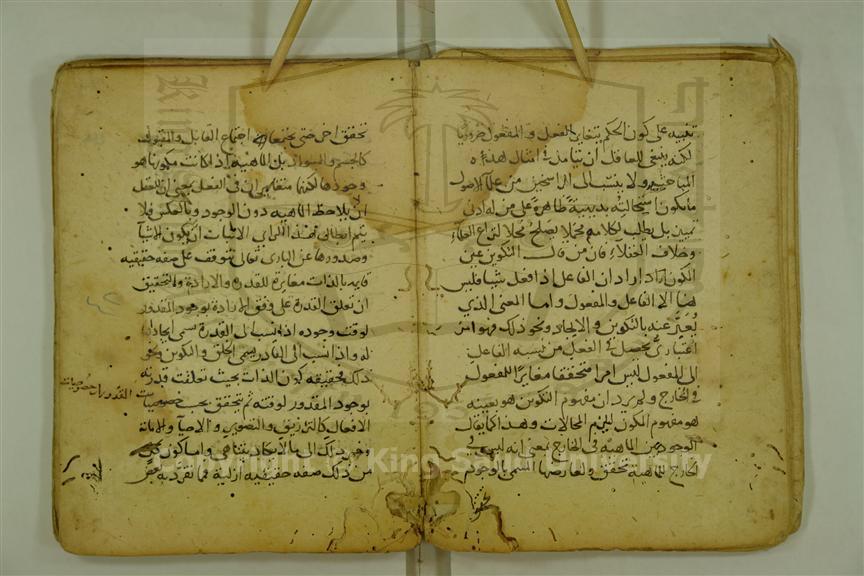 تنبيه على كون الحكم بتغاير الفعل والمفعول ضروريا
لكنه ينبغي للعاقل ان يتامل في امثال هذه
المباحث ولا ينسب الى الراسخين من علماء الاصول
ما يكون استحالته بديهية ظاهرة على من له ادنى
تمييز بل يطلب لكلامهم محملا يصلح محلا لنزاع العلماء
وخلاف العقلاء فان من قال التكوين عين
المكون اراد ان الفاعل اذا فعل شيا فليس
هنا الا الفاعل والمفعول واما المعنى الذي
يعبر عنه بالتكوين والايجاد ونحو ذلك فهو امر
اعتباري يحصل في العقل من نسبة الفاعل
الى المفعول ليس امرا محققا مغايرا للمفعول
في الخارج ولم يرد ان مفهوم التكوين هو بعينه
هو مفهوم المكون ليلزم المحالات وهذا كما يقال
الوجود عين الماهية في الخارج بمعنى انه ليس في
الخارج للماهية تحقق ولعارضها المسمى بالوجود
تحقق اخر حتى يجتمعا اجتماع القابل والمقبول
كالجسم والسواد بل الماهية اذا كانت فكونها هو
وجودها لكنهما متغايران في العقل بمعنى ان للعقل
ان يلاحظ الماهية دون الوجود وبالعكس فلا
يتم ابطال هذا الراي الا باثبات ان تكون الاشيا
وصدورها عن الباري تعالى تتوقف على صفة حقيقية
قايمة بالذات مغايرة للقدرة والارادة والتحقيق
ان تعلق القدرة على وفق الارادة بوجود المقدور
لوقت وجوده اذا نسب الى القدرة يسمى ايجادا
له واذا نسب الى القادر يسمى الخلق والتكوين ونحو
ذلك فحقيقته كون الذات بحيث تعلقت قدرته
بوجود المقدور لوقته ثم يتحقق بحسب خصوصيات
المقدورات خصوصيات
الافعال كالترزيق والتصوير والاحيا والاماتة
وغير ذلك الى ما لا يكاد يتناهى واما كون كل
من ذلك صفة حقيقية ازلية فمما تفرد به بعض
Copyright © King Saud University
1957